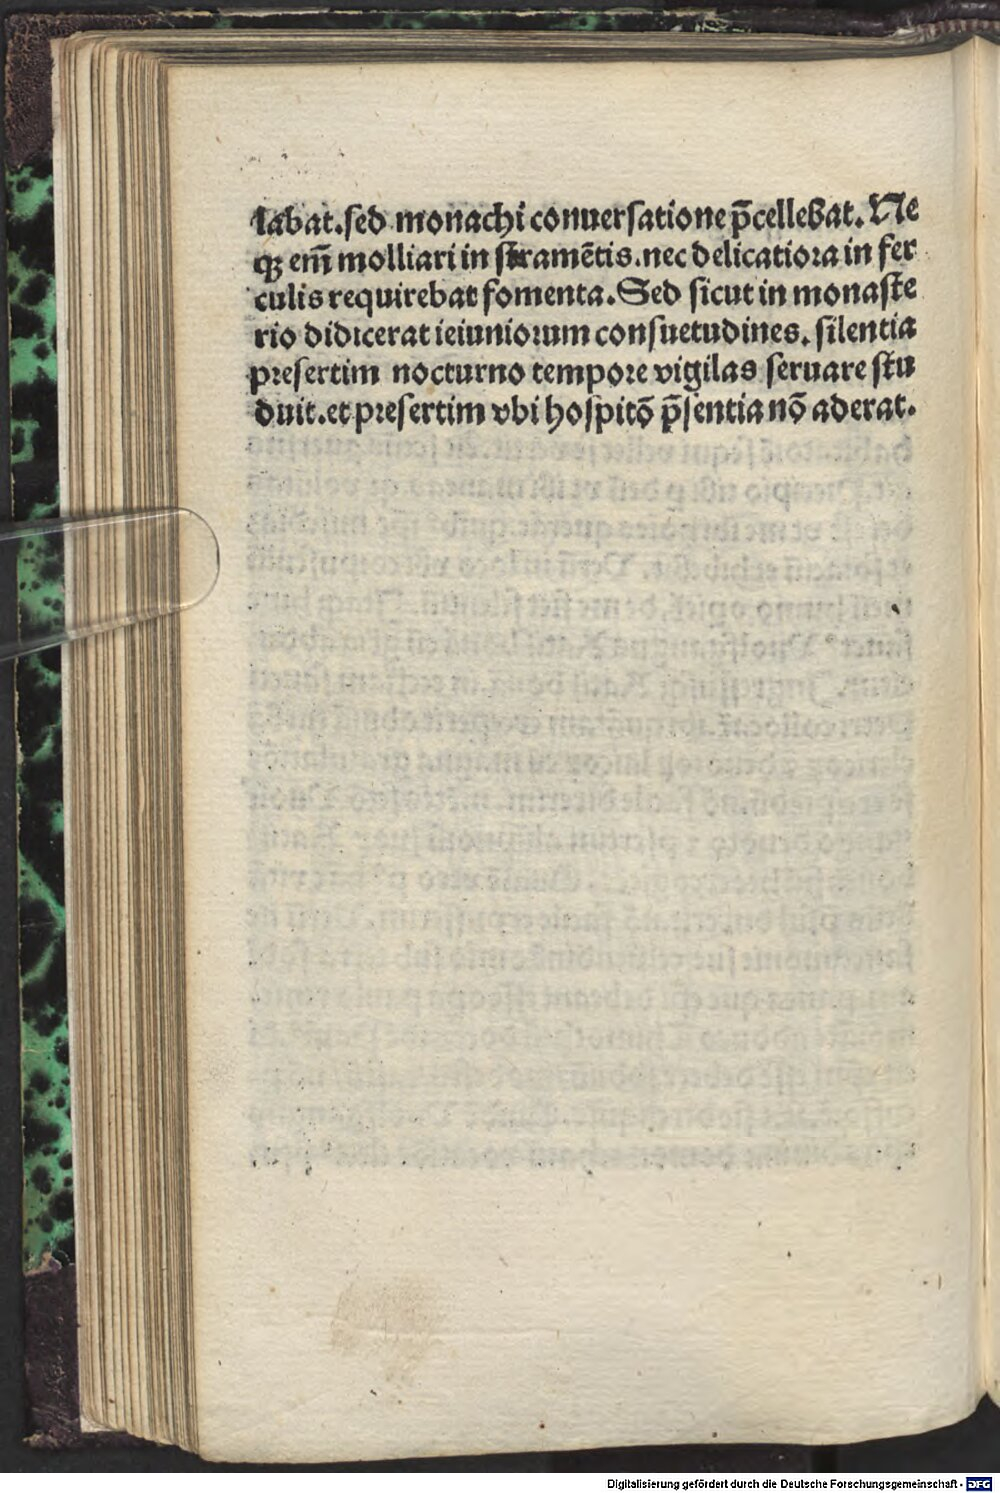 labat.sed monachi conuersatione p̄cellebat. Ne
qꝫ em̄ molliari in stramētis.nec delicatiora in fer
culis requirebat fomenta. Sed sicut in monaste
rio didicerat ieiuniorum consuetudines. silentia
presertim nocturno tempore vigilas seruare stu
duit.et presertim vbi hospitō p̄sentia nō aderat.
Digitalisierung gefördert durch die Deutsche Forschungsgemeinschaft - DFG